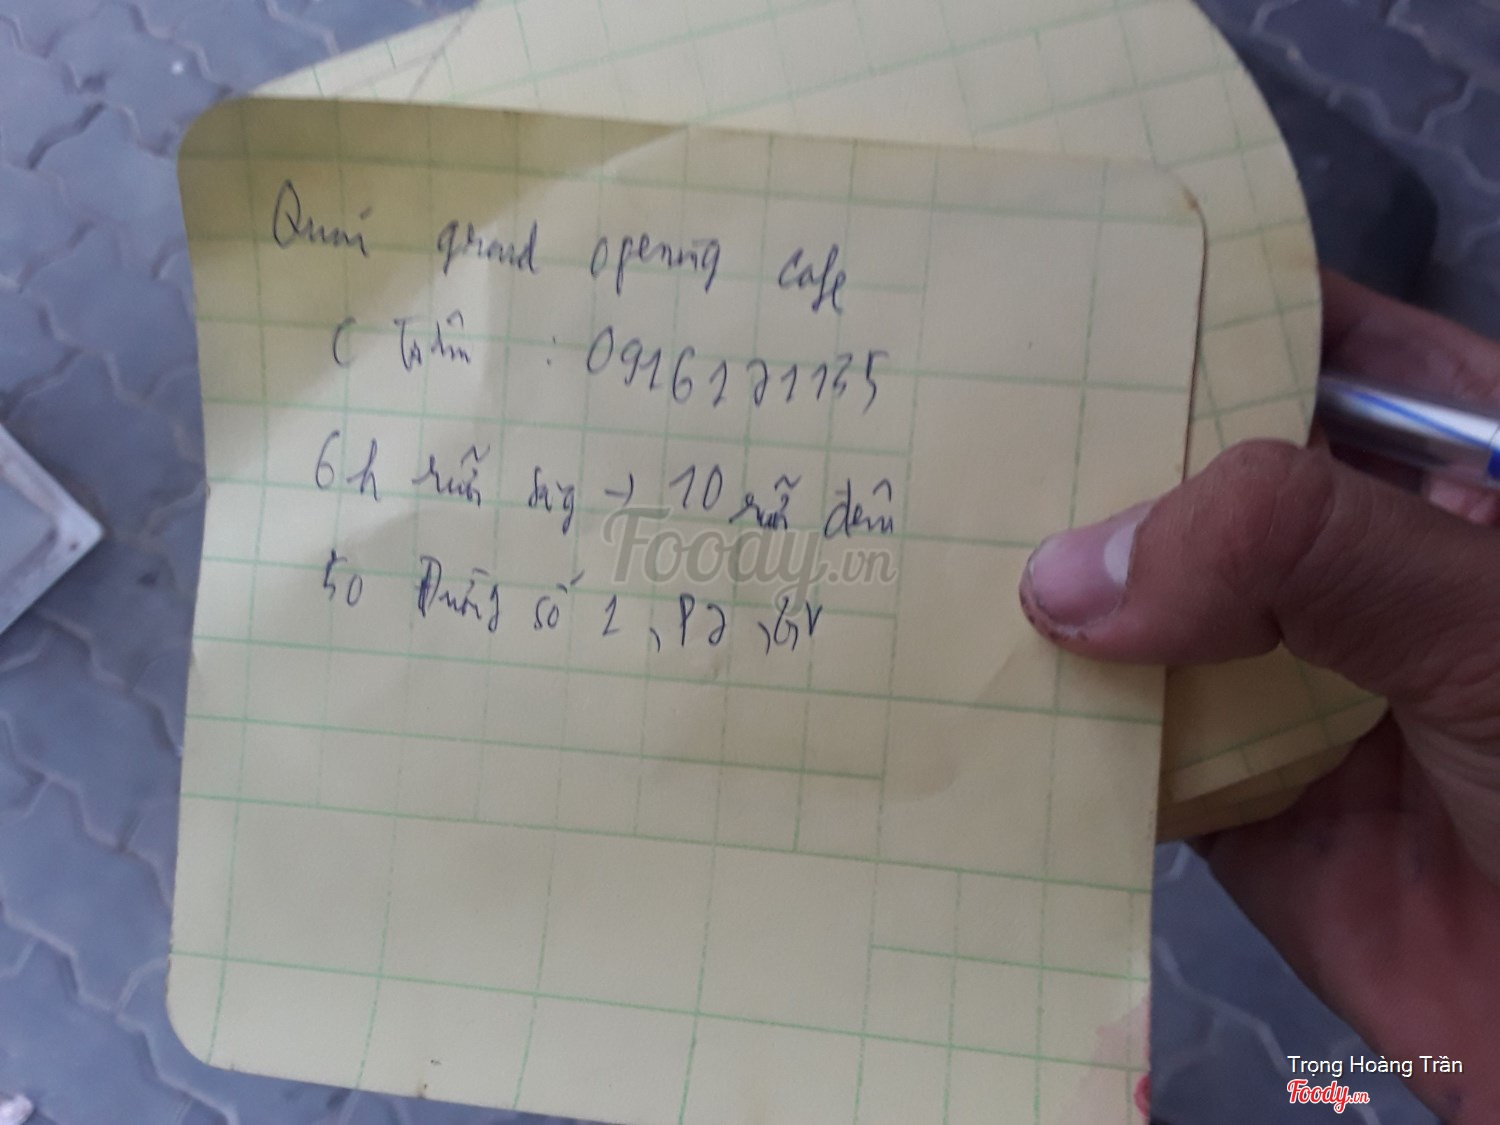 Quán grand opening cafe
C Trâm : 0916121135
6h rưỡi sáng → 10 rưỡi đêm
50 Đường số 1, P7, GV
Foody.vn
Trọng Hoàng Trần
Foody.vn